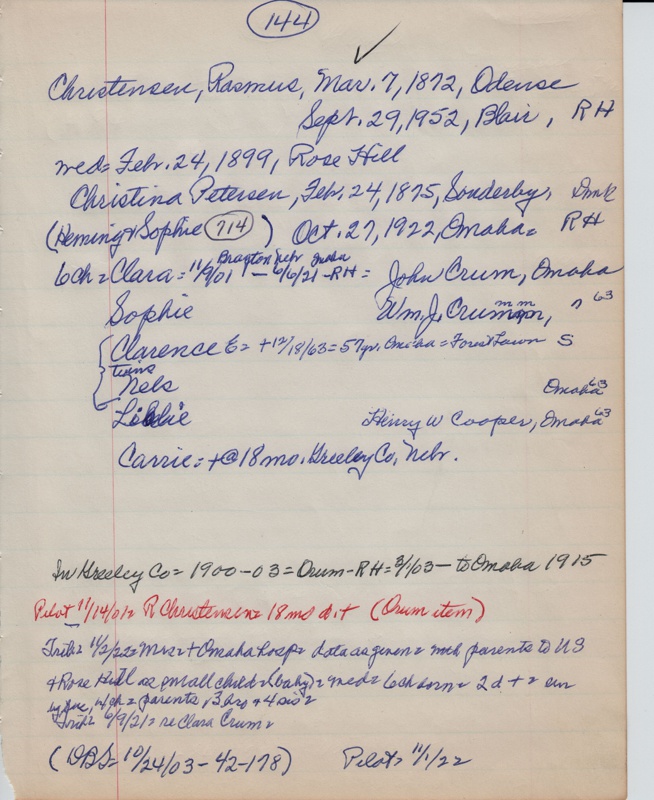 144
Christensen, Rasmus, Mar. 7, 1872, Odense
Sept. 29, 1952, Blair, RH
med = Febr. 24, 1899, Rose Hill
Christina Petersen, Feb. 24, 1875, Sonderby, Dmk
(Heming & Sophie 714) Oct. 27, 1922, Omaha = RH
Braxton Nebr Omaha
6ch = Clara = 11/9/01 - 6/6/21 - RH = John Crum, Omaha
Sophie Wm. J. Crum, 63
Clarence E = + 12/18/63 = 57 yr. Omaha = Forest Lawn S
twins
Nels Omaha 63
Libbie Henry W Cooper, Omaha 63
Carrie = + @ 18 mo. Greeley Co, Nebr.
In Greeley Co = 1900-03 = Orum - RH = 3/1/03 - to Omaha 1915
Pilot 11/14/01 = R Christensen = 18 mo d. + (Orum item)
Trib = 11/2/22 = Mrs = + Omaha hosp = data as given = with parents to US
+ Rose Hill as small child (baby) = med = 6ch born = 2 d. + =
4ch = parents, 3 bro + 4 sis =
Trib = 6/9/21 = re Clara Crum =
(DBS = 10/24/03 - 42-178) Pilot = 11/1/22